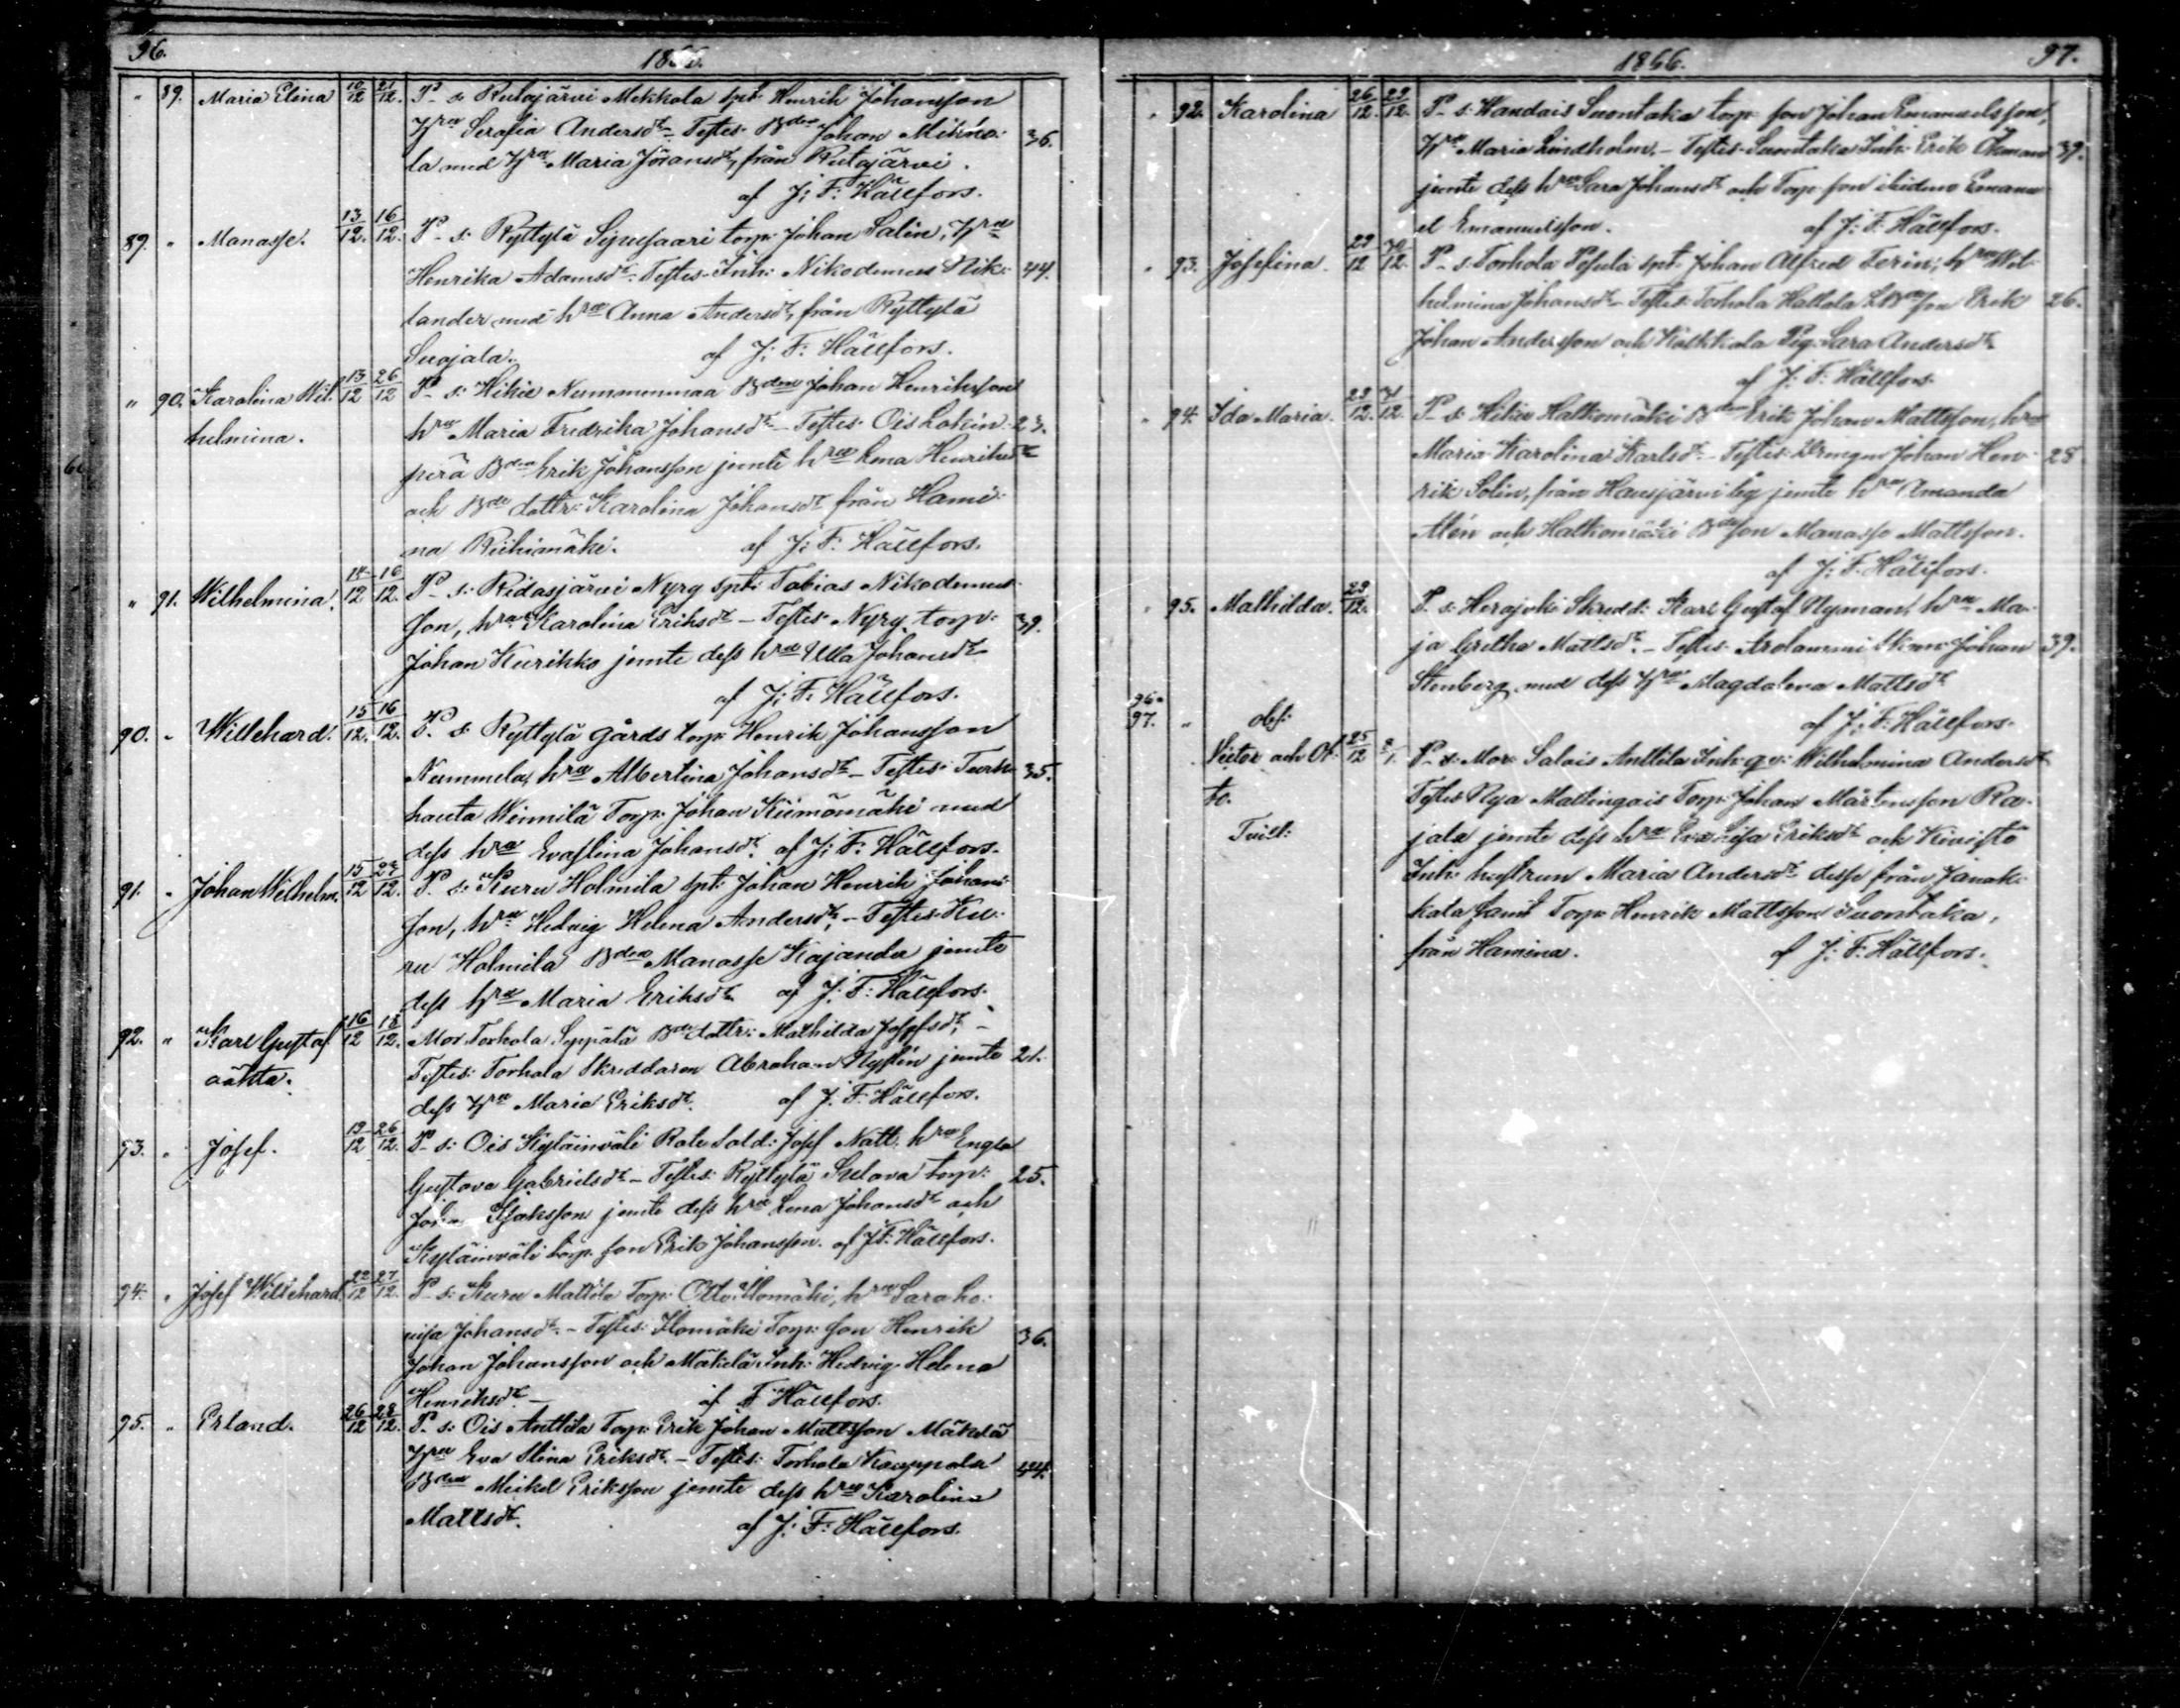 96.
1866.
" 89. Maria Elina 10/12 21/12. P. s. Ridasjärvi Mekkola spt: Henrik Johansson
H:ru Serafia Andersd:r Testes: Bd:en Johan Mikko-
la med H:ru Maria Jöransd:r, från Ridasjärvi. 36.
af J: F: Hällfors.
89. " Manasse. 13/12. 16/12. P. s. Ryttylä torp: Johan Salin, H:ru
Henrika Adamsd:r Testes: Inh: Nikodemus Nik- 44.
lander med h:ru Anna Andersd:r, från Ryttylä
Suojala. af J: F: Hällfors.
" 90. Karolina Wil- 13/12 26/12 P. s. Hikiä Nummenmaa Bd:en Johan Henriksson
helmina. h:ru Maria Fredrika Johansd:r Testes: Ois 23.
perä Bd:en Erik Johansson jemte h:ru Lena Henriksd:r
och Bd:e dottr: Karolina Johansd:r från Hami-
na Riihimäki. af J: F: Hällfors.
" 91. Wilhelmina. 14/12 16/12. P. s. Ridasjärvi Nyry spt: Tobias Nikodemus-
son, h:ru Karolina Eriksd:r – Testes: Nyry torp: 39.
Johan Kurikko jemte dess h:ru Ulla Johansd:r
af J: F: Hällfors.
90. " Willehard. 15/12. 16/12. P. s. Ryttylä gårds torp: Henrik Johansson
Nummela, h:ru Albertina Johansd:r – Testes: Turk- 35.
hauta Winnilä Torp: Johan Kiimamäki med
dess h:ru Evastina Johansd:r. af J: F: Hällfors.
91. " Johan Wilhelm. 15/12 23/12. P. s. Kuru Holmila spt: Johan Henrik Johans-
son, h:ru Hedvig Helena Andersd:r, – Testes: Ku-
ru Holmila Bd:en Manasse Kajander jemte
dess h:ru Maria Eriksd:r af J: F: Hällfors.
92. " Karl Gustaf 16/12 18/12. Mor. Torhola Seppälä Bd:e dottr: Mathilda Josefsd:r, –
oäkta. Testes: Torhola Skreddaren Abraham Nyslin jemte 21.
dess H:ru Maria Eriksd:r. af J. F. Hällfors.
93. " Josef. 19/12 26/12. P. s: Ois Kyläinväli Rote Sold: Josef Natt. h:ru Engla
Gustava Gabrielsd:r – Testes: Ryttylä torp: 25.
Johan Isaksson jemte dess h:ru Lena Johansd:r och
Kyläinväli torp. son Erik Johansson. af J: F: Hällfors.
94. " Josef Willehard 22/12 27/12. P. s: Kuru Mattila Torp: Otto Ilomäki, h:ru Sara Lo-
visa Johansd:r. – Testes: Ilomäki Torp: son Henrik 36.
Johan Johansson och Mäkelä Inh: Hedvig Helena
Henriksd:r – af F Hällfors.
95. " Erland. 26/12 28/12. P. s: Ois Anttila Torp: Erik Johan Mattsson Mäkelä
H:ru Eva Stina Eriksd:r – Testes: Torhola Kauppala 44.
Bd:en Mickel Eriksson jemte dess h:ru Karolina
Mattsd:r. af J: F: Hällfors.
1866.
97.
" 92. Karolina 26/12. 29/12. P. s. Handais Suontaka torp: son Johan Emanuelsson,
H:ru Maria Lindholm. – Testes: Suontaka Inh: Erik Ökman 39.
jemte dess h:ru Sara Johansd:r och Torp: son ibidem Emanu-
el Emanuelsson. af J: F: Hällfors.
" 93. Josefina. 29/12 30/12. P. s. Torhola Pesula spt. Johan Alfred Terin, h:ru Wil-
helmina Johansd:r – Testes: Torhola Hattala son Erik 26.
Johan Andersson och Pig: Sara Andersd:r
af J: F: Hällfors.
" 94. Ida Maria. 29/12. 31/12. P. s: Hikiä Halkomäki Bd:en Erik Johan Mattsson, h:ru
Maria Karolina Karlsd:r. – Testes: Drengen Johan Hen- 28.
rik Solin, från Hausjärvi by jemte h:ru Amanda
Alén och Halkomäki Bd:e son Manasse Mattsson.
af J: F: Hällfors.
" 95. Mathilda. 29/12. P. s: Herajoki Skredd: Karl Gustaf Nyman h:ru Ma-
ja Gretha Mattsd:r. – Testes: Arolammi Johan 39.
Stenberg med dess H:ru Magdalena Mattsd:r
af J: F: Hällfors.
96-
97. " obs:
Victor och Ot- 25/12 P. s: Mor: Salais Anttila Inh: qv: Wilhelmina Andersd:r
to. Testes: Nya Mallingais Torp: Johan Mårtensson Ra-
Tvill: jala jemte dess h:ru Eva Lisa Eriksd:r och Kivistö
Inh: hustrun Maria Andersd:r desse från Janak-
kala samt Torp: Henrik Mattsson Suontaka,
från Hamina. af J: F: Hällfors.